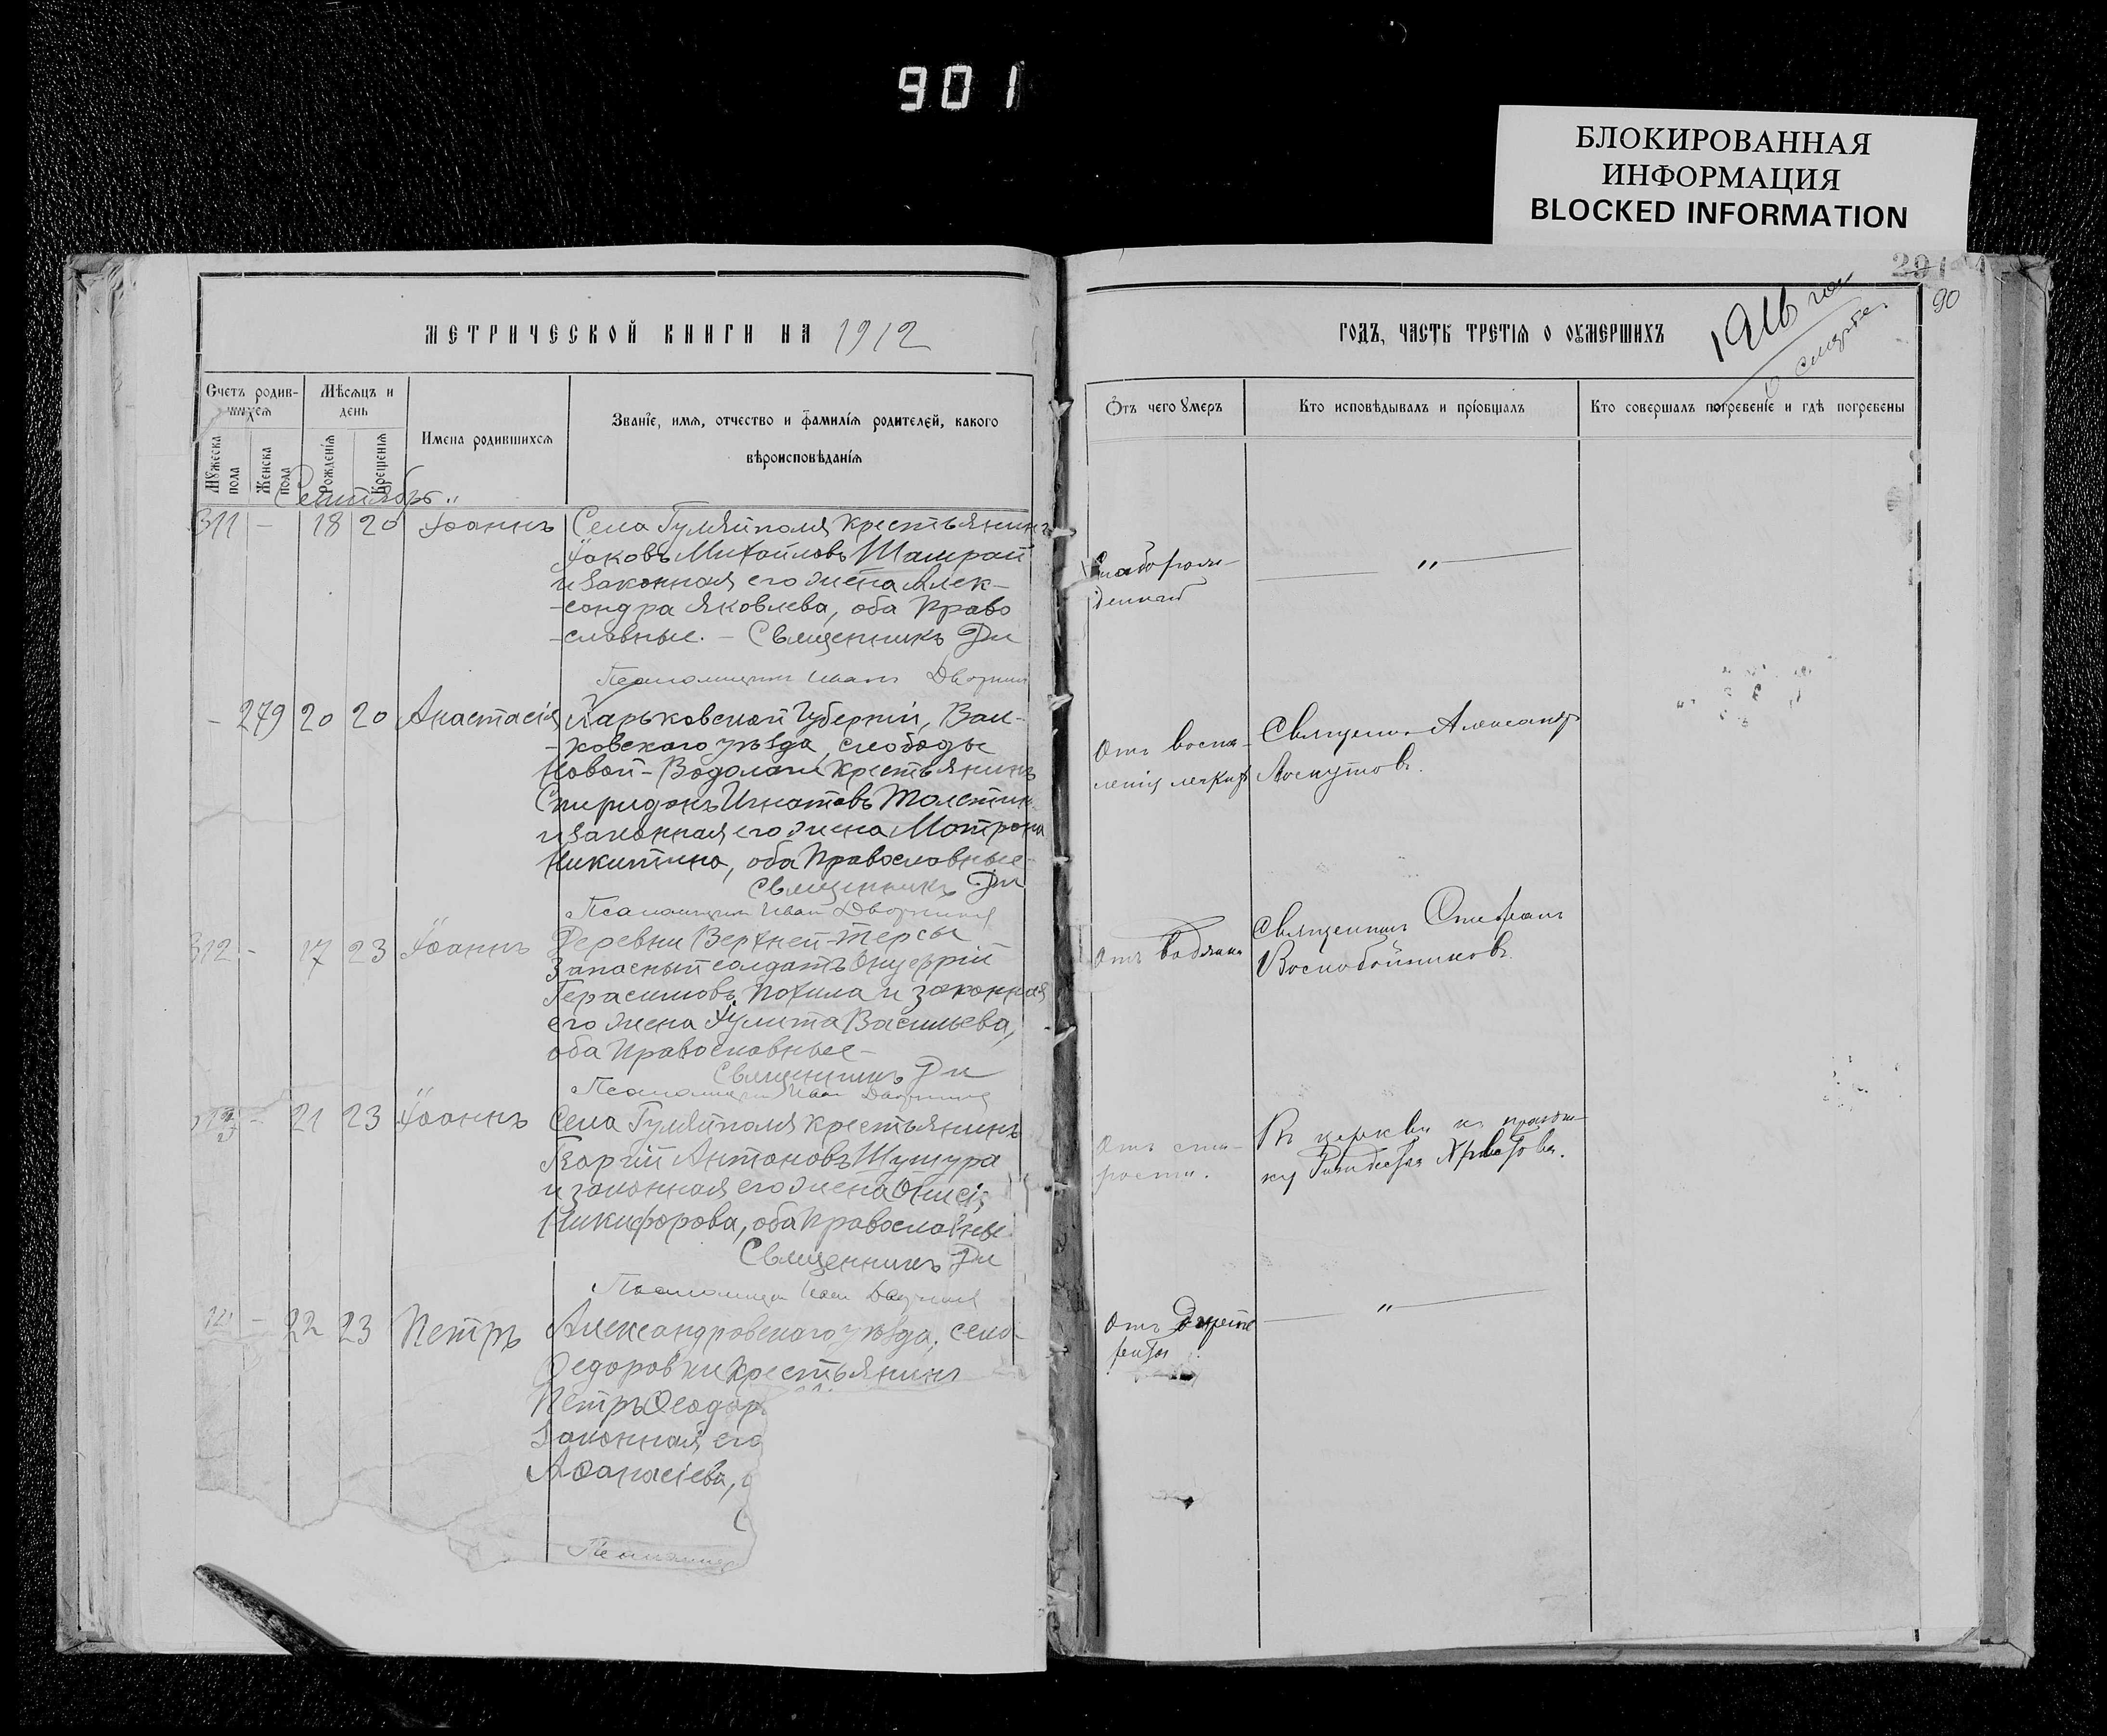 901
БЛОКИРОВАННАЯ
ИНФОРМАЦИЯ
BLOCKED INFORMATION
МЕТРИЧЕСКОЙ КНИГИ НА 1912
Счетъ родив-
шихся
Мѣсяцъ и
день
Мужеска
пола
Женска
пола
Рожденія
Крещенія
Имена родившихся
Званіе, имя, отчество и фамилія родителей, какого
вѣроисповѣданія
Сентябрь
311 - 18 20 Іоаннъ Села Гуляйполя крестьянинъ
Іаковъ Михайловъ Шамрай
и законная его жена Алек-
-сандра Яковлева, оба право
-славные. - Священникъ
Псаломщикъ Иванъ
- 279 20 20 Анастасія Харьковской Губерніи, Вал-
-ковскаго уѣзда, слободы
Новой-Водолаги крестьянинъ
Спиридонъ Игнатовъ
и законная его жена Матрона
Никитина, оба православные
Священникъ
Псаломщикъ Иван
312 - 17 23 Іоаннъ Деревни Верхней-Терсы
Запасный солдатъ Онуфрій
Герасимовъ Похила и законная
его жена Іулита Васильева,
оба православные-
Священникъ
Псаломщикъ Иван
- 21 23 Іоаннъ Села Гуляйполя крестьянинъ
Георгій Антоновъ
и законная его жена
Никифорова, оба православны
Священникъ
Псаломщик Иван
- 22 23 Петръ Александровскаго уѣзда, села
Федоровки крестьянинъ
Петръ Ѳеодор
законная его
Аѳанасіева,
90
ГОДЪ, ЧАСТЬ ТРЕТІЯ О ОУМЕРШИХЪ
1916 год
о смерти
Отъ чего умеръ
Кто исповѣдывалъ и пріобщалъ
Кто совершалъ погребеніе и гдѣ погребены
"
Отъ воспа-
ленія легкихъ
Священ. Александръ
Лоскутовъ.
Отъ водянки
Священникъ Стефанъ
Воскобойниковъ.
Отъ ста-
рости.
Въ церкви
Рождества Христова.
Отъ
"